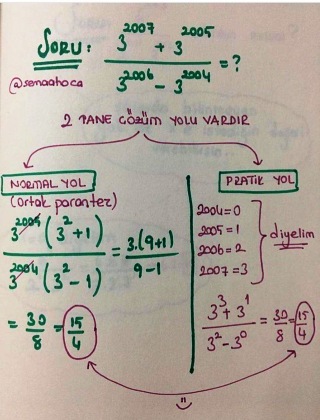 SORU: 3^2007 + 3^2005 / 3^2006 - 3^2004 = ?
@senaahoca
2 TANE ÇÖZÜM YOLU VARDIR
NORMAL YOL
(ortak parantez)
3^2005 (3^2+1) / 3^2004 (3^2-1) = 3.(9+1) / 9-1
= 30/8 = 15/4
PRATİK YOL
2004=0
2005=1
2006=2
2007=3
diyelim
3^3+3^1 / 3^2-3^0 = 30/8 = 15/4